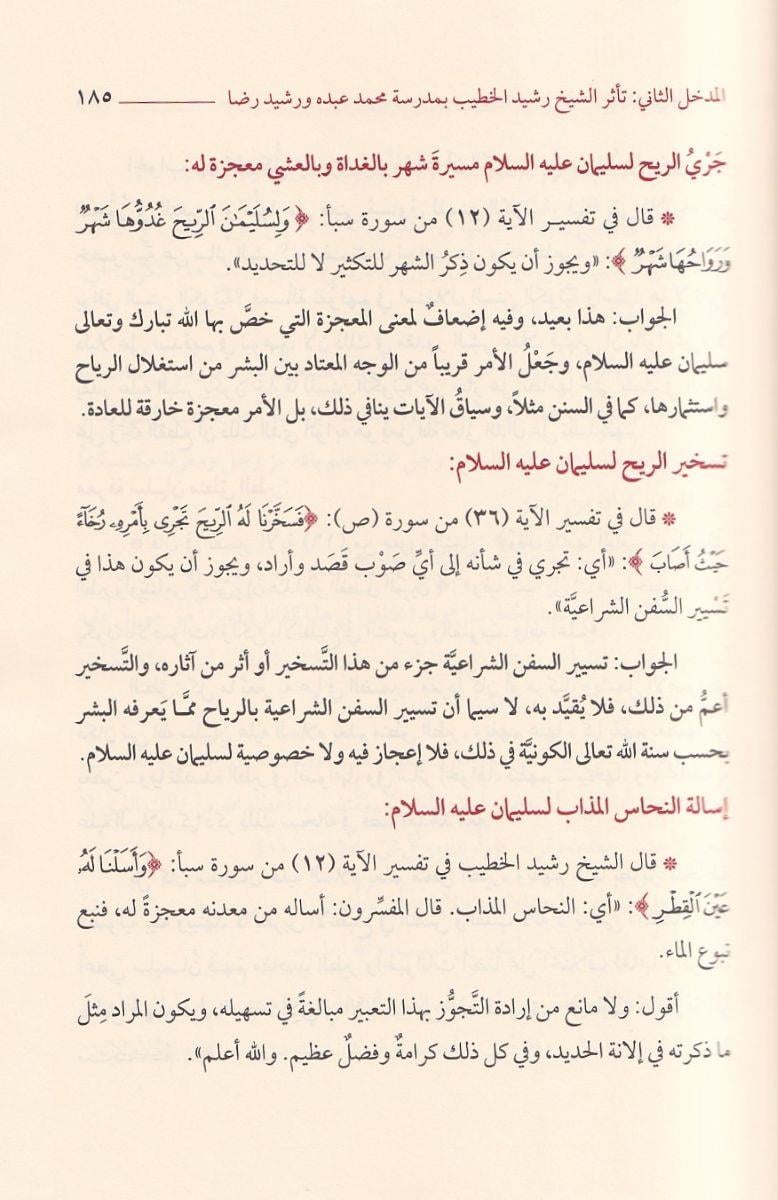 المدخل الثاني: تأثر الشيخ رشيد الخطيب بمدرسة محمد عبده ورشيد رضا ــــــــــ ١٨٥
جَرْيُ الريح لسليمان عليه السلام مسيرةَ شهر بالغداة وبالعشي معجزة له:
* قال في تفسير الآية (١٢) من سورة سبأ: ﴿وَلِسُلَيْمَٰنَ ٱلرِّيحَ غُدُوُّهَا شَهْرٌ
وَرَوَاحُهَا شَهْرٌ﴾: «ويجوز أن يكون ذِكرُ الشهر للتكثير لا للتحديد».
الجواب: هذا بعيد، وفيه إضعافٌ لمعنى المعجزة التي خصَّ بها الله تبارك وتعالى
سليمان عليه السلام، وجَعْلُ الأمر قريباً من الوجه المعتاد بين البشر من استغلال الرياح
واستثمارها، كما في السنن مثلاً، وسياقُ الآيات ينافي ذلك، بل الأمر معجزة خارقة للعادة.
تسخير الريح لسليمان عليه السلام:
* قال في تفسير الآية (٣٦) من سورة (ص): ﴿فَسَخَّرْنَا لَهُ ٱلرِّيحَ تَجْرِى بِأَمْرِهِۦ رُخَآءً
حَيْثُ أَصَابَ﴾: «أي: تجري في شأنه إلى أيِّ صَوْب قَصَد وأراد، ويجوز أن يكون هذا في
تَسْيِير السُّفن الشراعيَّة».
الجواب: تسيير السفن الشراعيَّة جزء من هذا التَّسخير أو أثر من آثاره، والتَّسخير
أعمُّ من ذلك، فلا يُقيَّد به، لا سيما أن تسيير السفن الشراعية بالرياح ممَّا يَعرفه البشر
بحسب سنة الله تعالى الكونيَّة في ذلك، فلا إعجاز فيه ولا خصوصية لسليمان عليه السلام.
إسالة النحاس المذاب لسليمان عليه السلام:
* قال الشيخ رشيد الخطيب في تفسير الآية (١٢) من سورة سبأ: ﴿وَأَسَلْنَا لَهُۥ
عَيْنَ ٱلْقِطْرِ﴾: «أي: النحاس المذاب. قال المفسِّرون: أساله من معدنه معجزةً له، فنبع
نبوع الماء.
أقول: ولا مانع من إرادة التَّجوُّز بهذا التعبير مبالغةً في تسهيله، ويكون المراد مِثلَ
ما ذكرته في إلانة الحديد، وفي كل ذلك كرامةٌ وفضلٌ عظيم. والله أعلم».